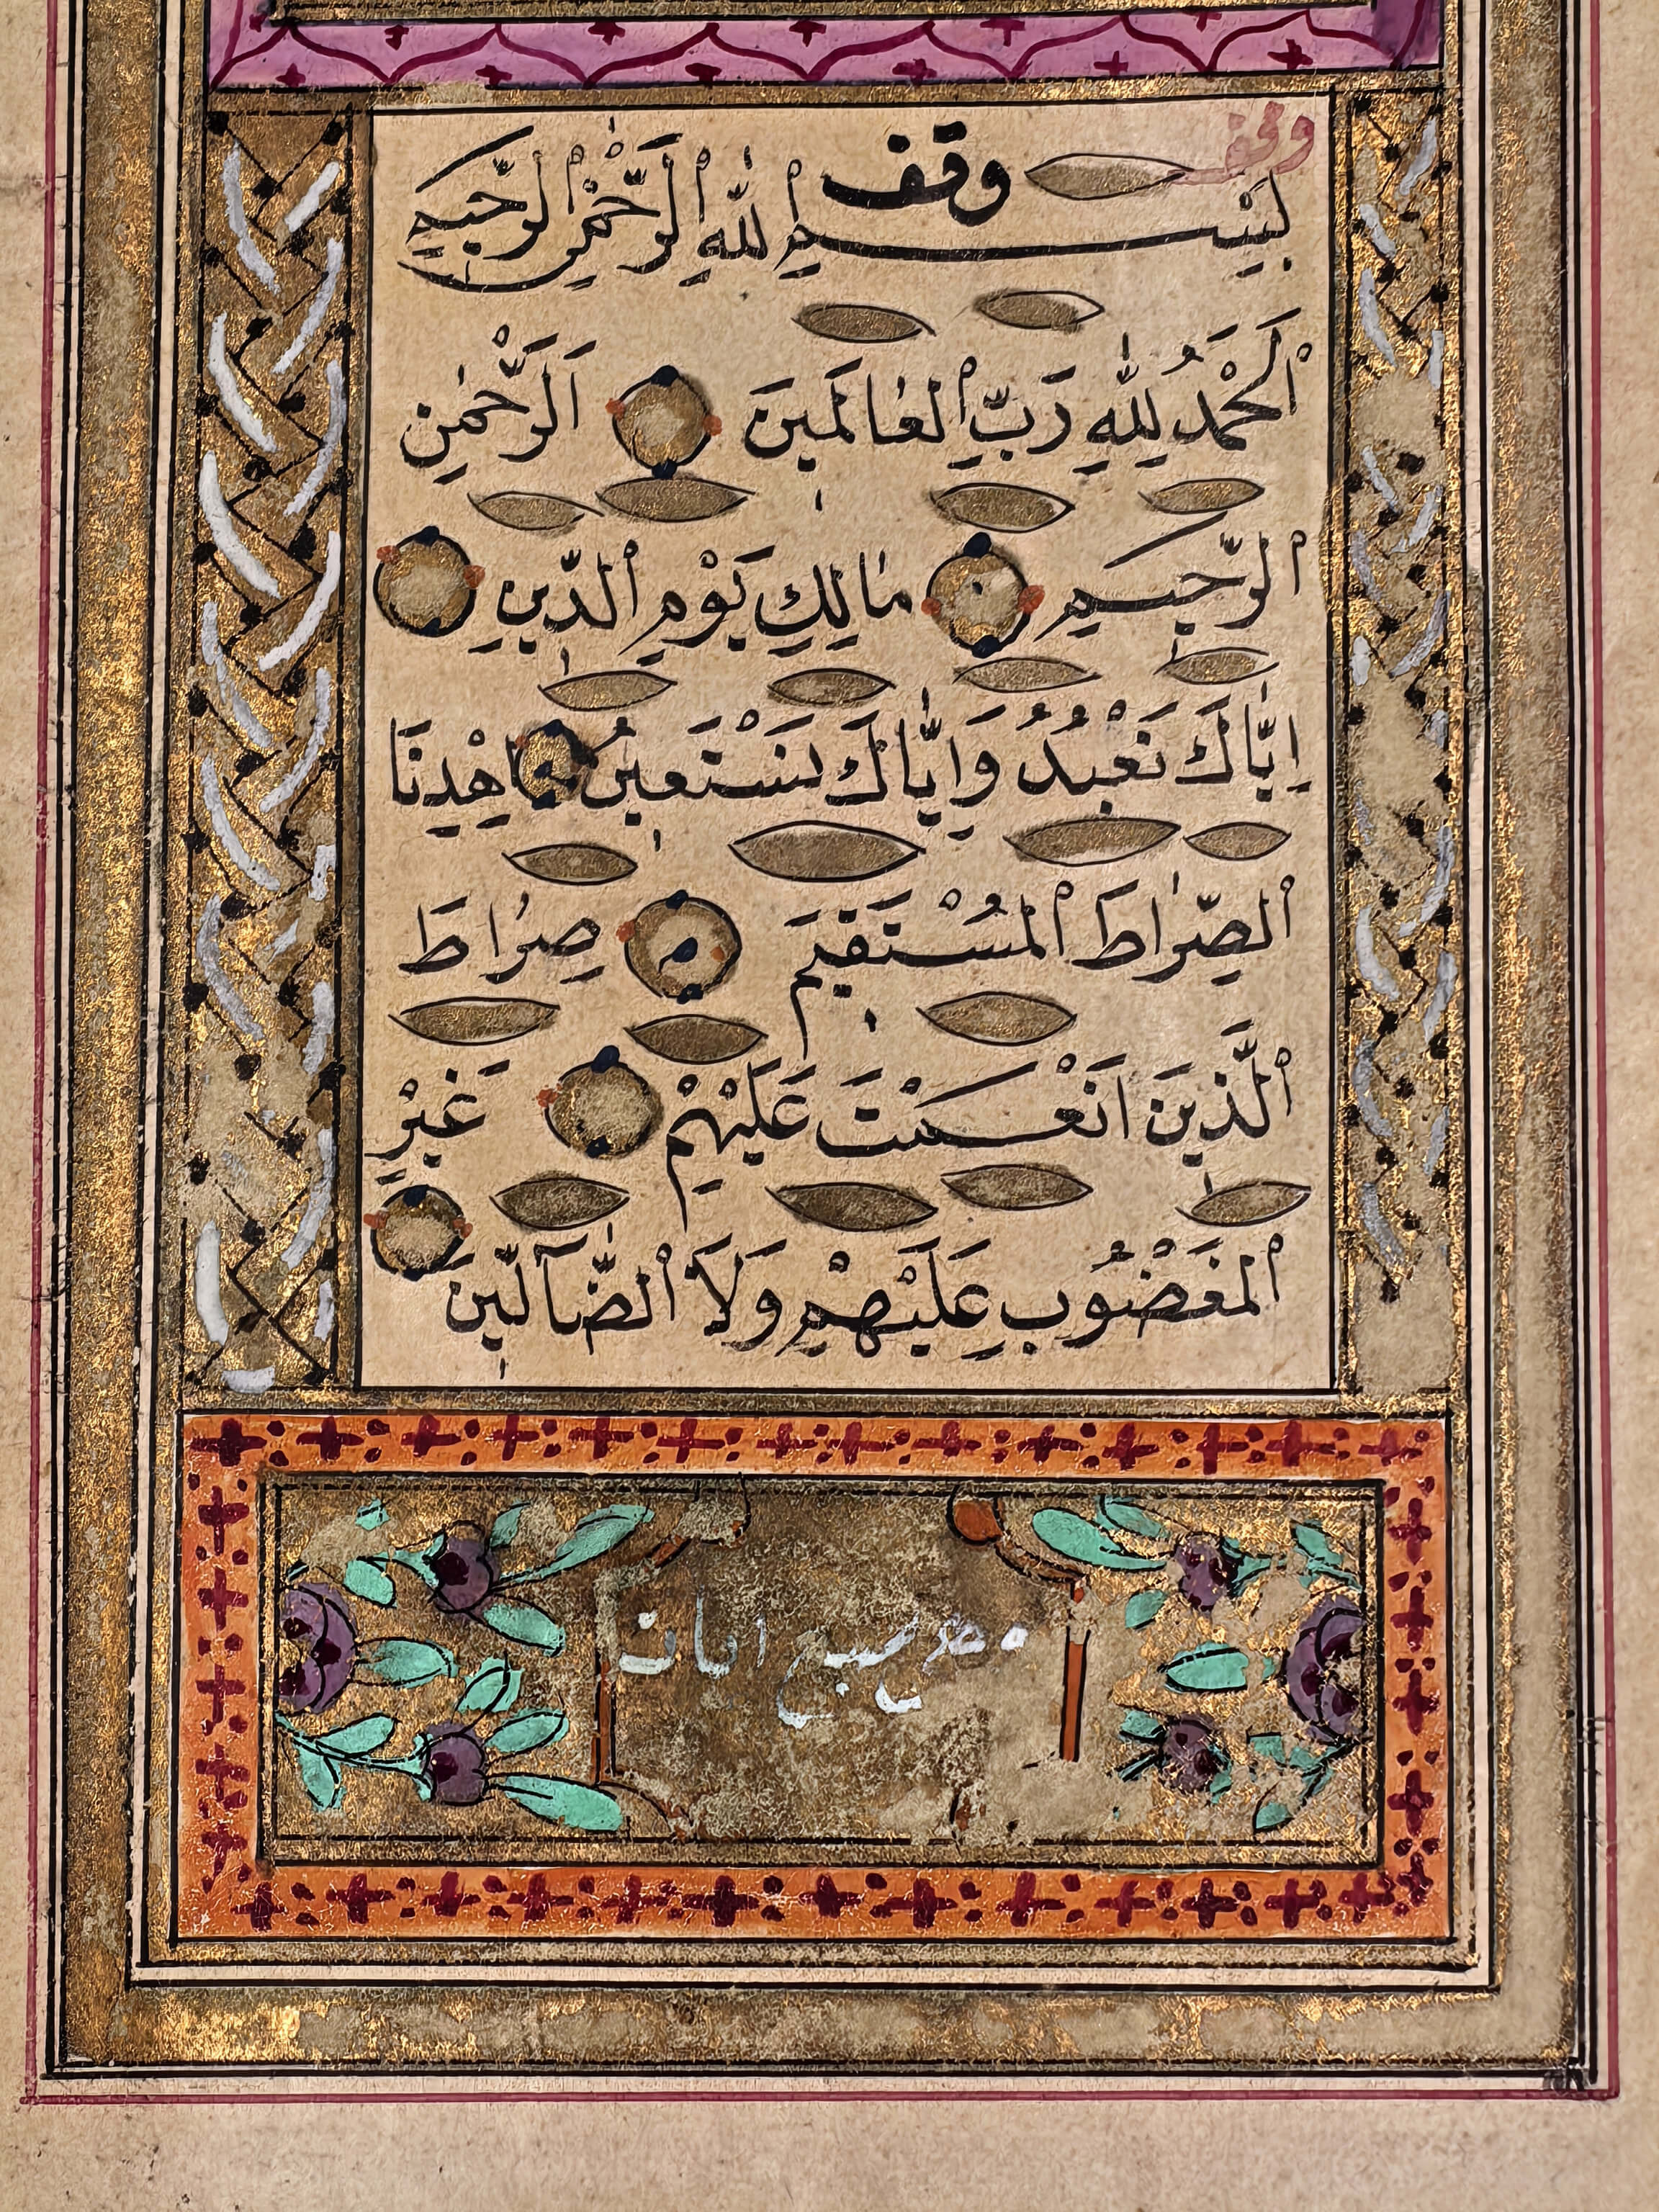 وقف
وقف
بِسْمِ اللّٰهِ الرَّحْمٰنِ الرَّحِيمِ
اَلْحَمْدُ لِلّٰهِ رَبِّ الْعَالَمِينَ اَلرَّحْمٰنِ
الرَّحِيمِ مَالِكِ يَوْمِ الدِّينِ
اِيَّاكَ نَعْبُدُ وَاِيَّاكَ نَسْتَعِينُ اِهْدِنَا
الصِّرَاطَ الْمُسْتَقِيمَ صِرَاطَ
الَّذِينَ اَنْعَمْتَ عَلَيْهِمْ غَيْرِ
الْمَغْضُوبِ عَلَيْهِمْ وَلَا الضَّآلِّينَ
سبع ايات